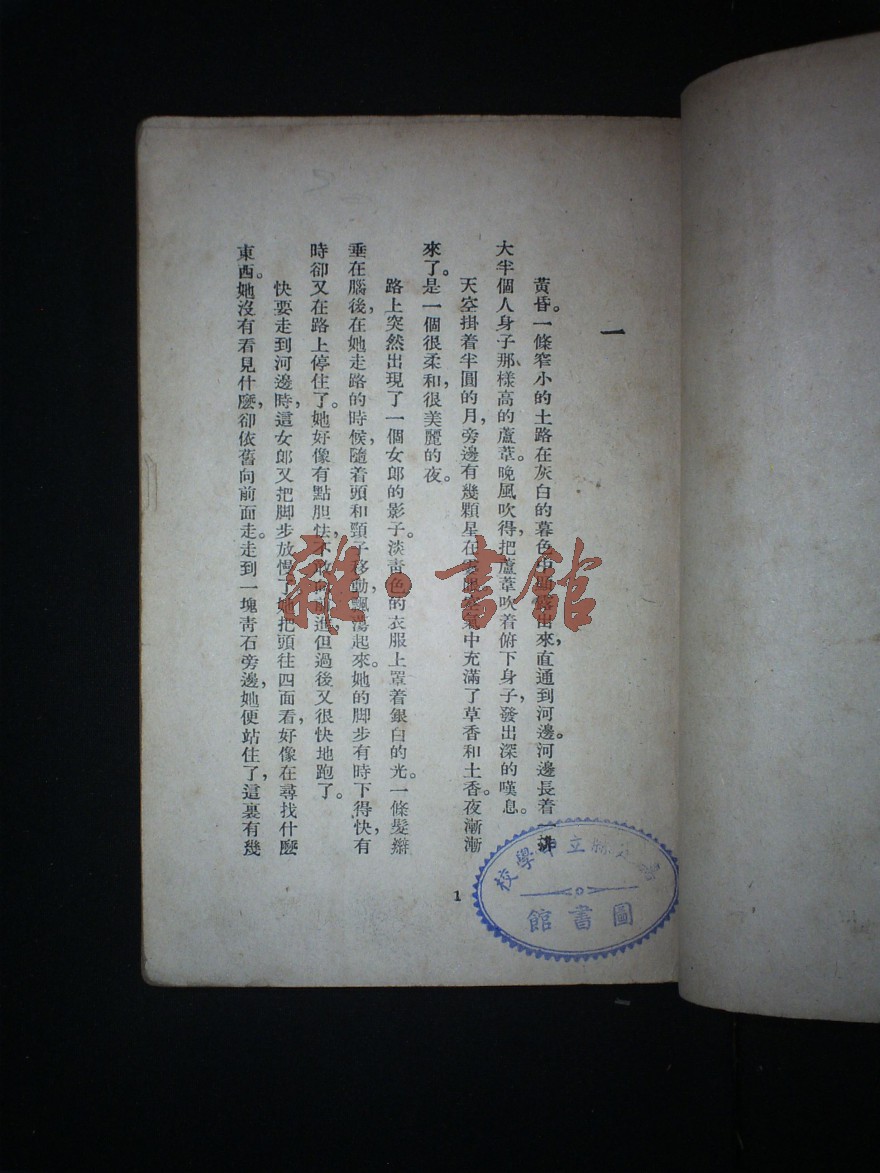 一
黃昏。一條窄小的土路在灰白的暮色中出來，直通到河邊。河邊長着一排
大半個人身子那樣高的蘆葦。晚風吹得，把蘆葦吹着俯下身子，發出深的嘆息。
天空掛着半圓的月，旁邊有幾顆星在氣中充滿了草香和土香。夜漸漸
來了。是一個很柔和，很美麗的夜。
路上突然出現了一個女郎的影子。淡青色的衣服上罩着銀白的光。一條髮辮
垂在腦後，在她走路的時候，隨着頭和頸子移動，飄蕩起來。她的脚步有時下得快，有
時卻又在路上停住了。她好像有點胆怯，不進，但過後又很快地跑了。
快要走到河邊時，這女郎又把脚步放慢了，她把頭往四面看，好像在尋找什麼
東西。她沒有看見什麼，卻依舊向前面走。走到一塊青石旁邊，她便站住了，這裏有幾
1
立中學校
圖書館
雜·書館